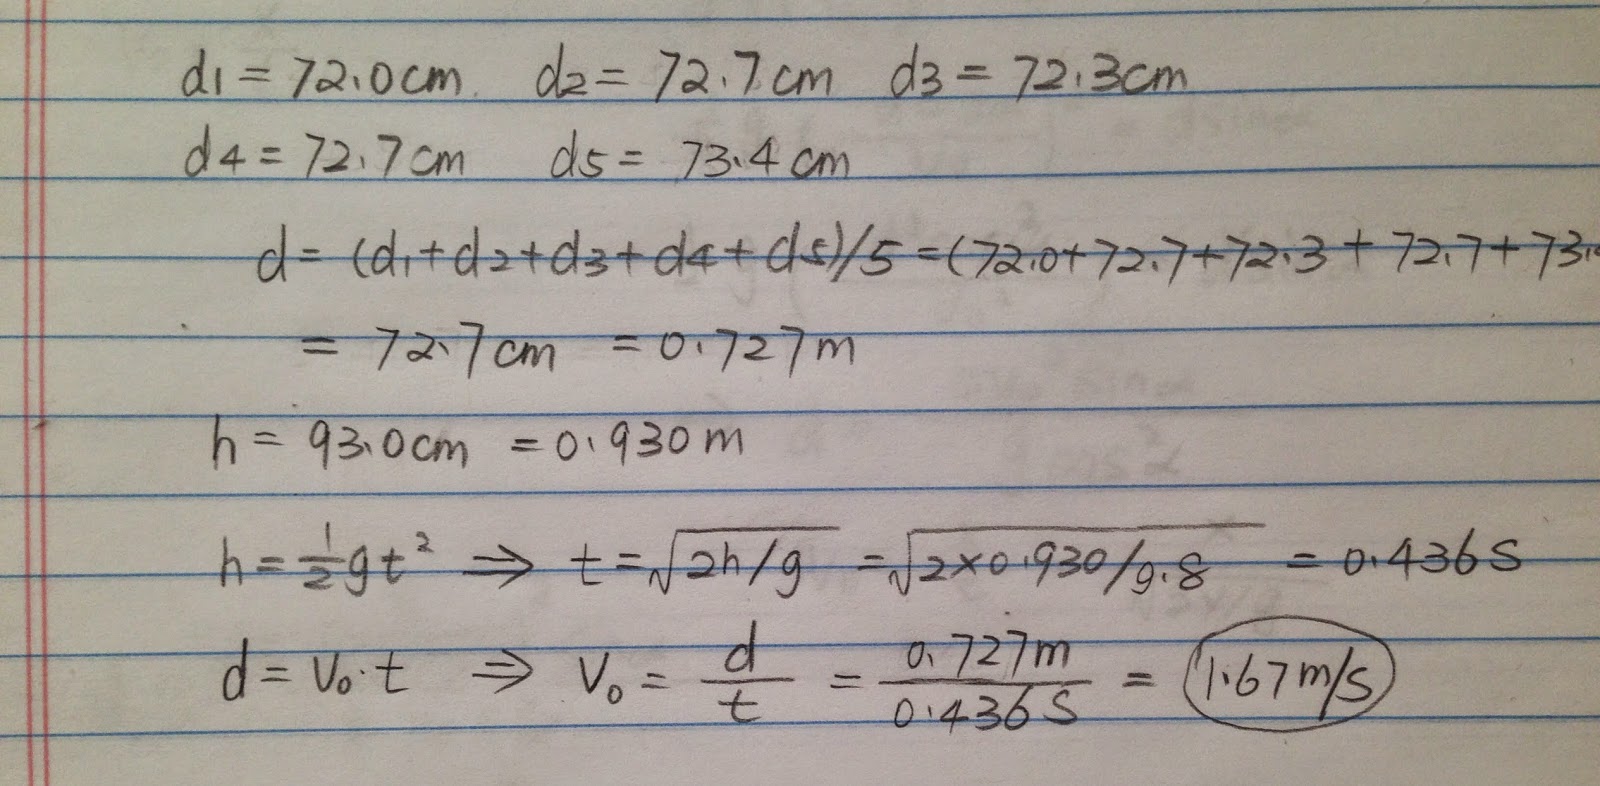 d1 = 72.0cm d2 = 72.7cm d3 = 72.3cm
d4 = 72.7cm d5 = 73.4cm
d = (d1+d2+d3+d4+d5)/5 = (72.0+72.7+72.3+72.7+73.
= 72.7cm = 0.727m
h = 93.0cm = 0.930m
h = ½gt² ⇒ t = √2h/g = √2×0.930/9.8 = 0.436s
d = V₀·t ⇒ V₀ = d/t = 0.727m/0.436s = 1.67m/s